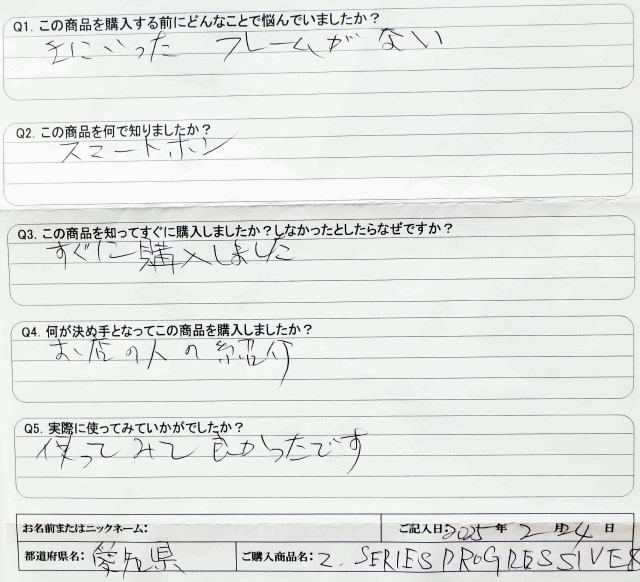 Q1. この商品を購入する前にどんなことで悩んでいましたか？
気にいった フレームがない
Q2. この商品を何で知りましたか？
スマートホン
Q3. この商品を知ってすぐに購入しましたか？しなかったとしたらなぜですか？
すぐに購入しました
Q4. 何が決め手となってこの商品を購入しましたか？
お店の人の紹介
Q5. 実際に使ってみていかがでしたか？
使ってみて良かったです
お名前またはニックネーム： ご記入日：2025年 2月24日
都道府県名：愛知県 ご購入商品名：Z. SERIES PROGRESSIVE8